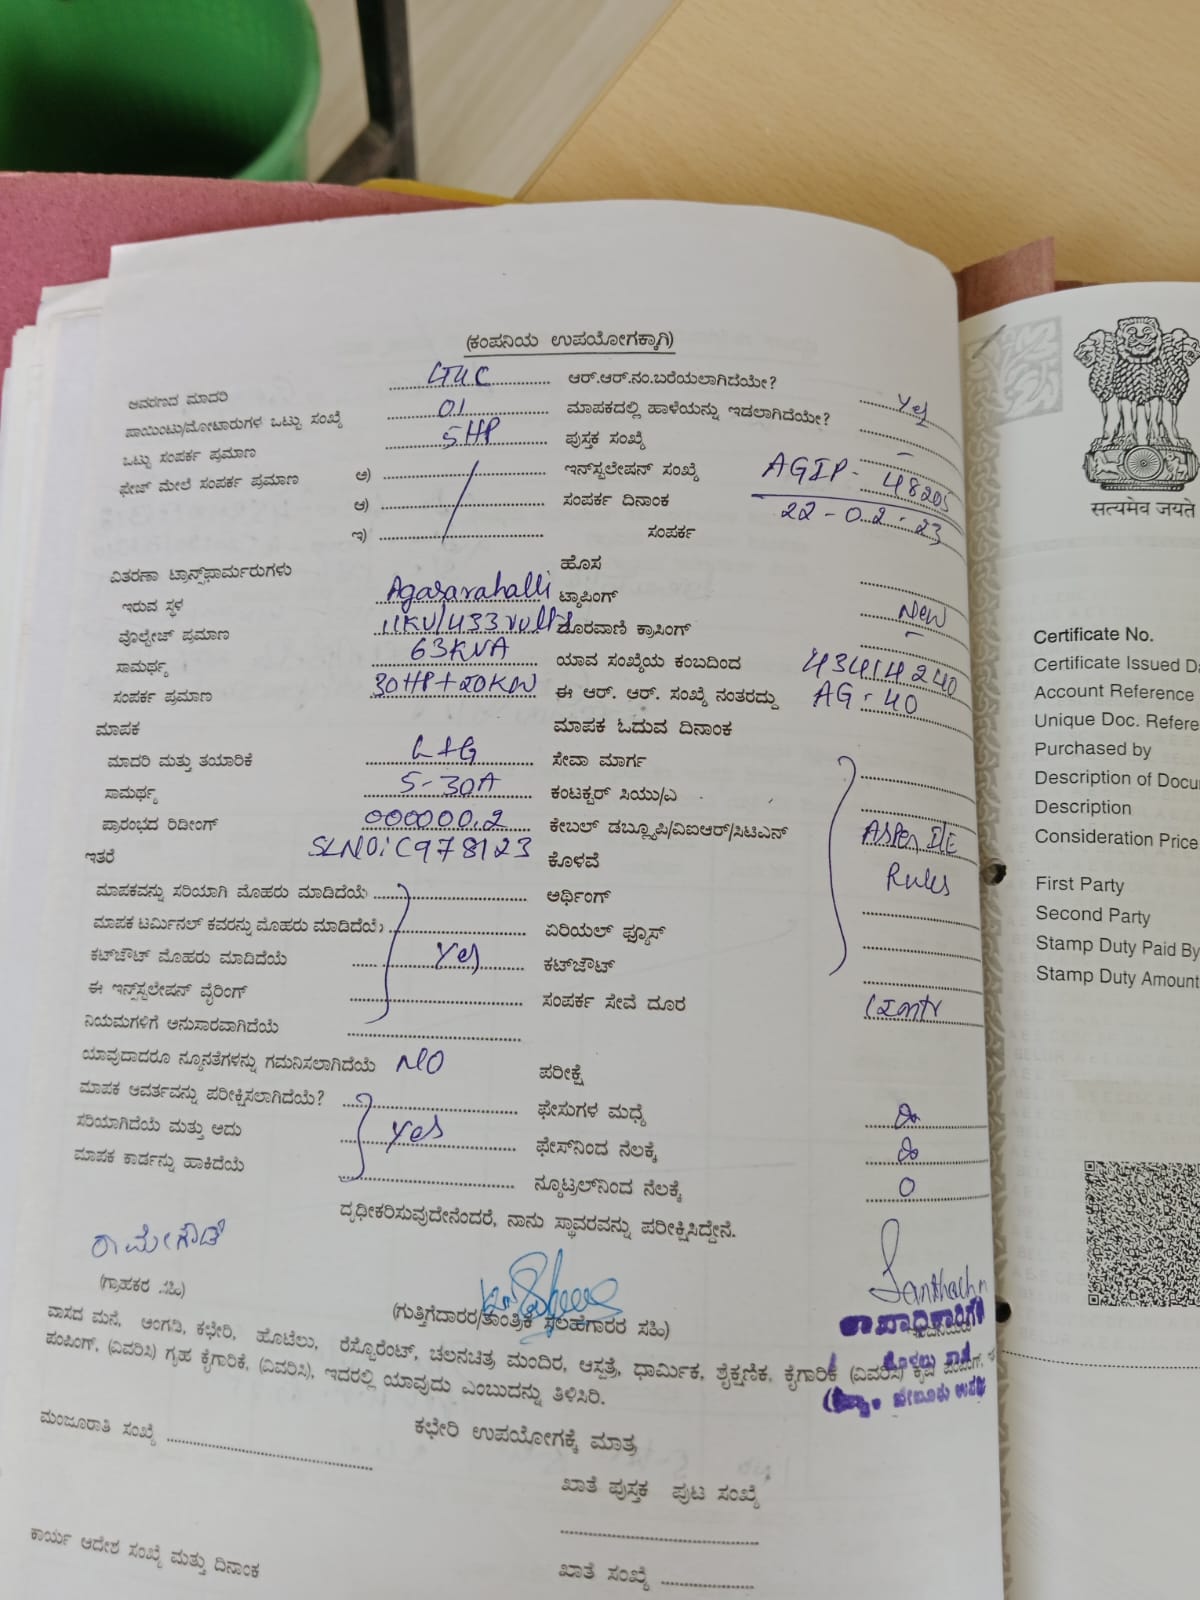 (ಕಂಪನಿಯ ಉಪಯೋಗಕ್ಕಾಗಿ)
ಆವರಣದ ಮಾದರಿ ಆರ್.ಆರ್.ನಂ.ಬರೆಯಲಾಗಿದೆಯೇ? Yes
ಪಾಯಿಂಟು/ಮೋಟಾರುಗಳ ಒಟ್ಟು ಸಂಖ್ಯೆ 01 ಮಾಪಕದಲ್ಲಿ ಹಾಳೆಯನ್ನು ಇಡಲಾಗಿದೆಯೇ? -
ಒಟ್ಟು ಸಂಪರ್ಕ ಪ್ರಮಾಣ 5HP ಪುಸ್ತಕ ಸಂಖ್ಯೆ
ಫೇಜ್ ಮೇಲೆ ಸಂಪರ್ಕ ಪ್ರಮಾಣ ಅ) ಇನ್‌ಸ್ಟಲೇಷನ್ ಸಂಖ್ಯೆ AGIP- 48205
ಆ) ಸಂಪರ್ಕ ದಿನಾಂಕ 22-02-23
ಇ) ಸಂಪರ್ಕ
ವಿತರಣಾ ಟ್ರಾನ್ಸ್‌ಫಾರ್ಮರುಗಳು ಹೊಸ
ಇರುವ ಸ್ಥಳ Agasarahalli ಟ್ಯಾಪಿಂಗ್ New
ವೊಲ್ಟೇಜ್ ಪ್ರಮಾಣ 11KV/433volts ದೂರವಾಣಿ ಕ್ರಾಸಿಂಗ್ -
ಸಾಮರ್ಥ್ಯ 63KVA ಯಾವ ಸಂಖ್ಯೆಯ ಕಂಬದಿಂದ 43414240
ಸಂಪರ್ಕ ಪ್ರಮಾಣ 30HP+20KW ಈ ಆರ್. ಆರ್. ಸಂಖ್ಯೆ ನಂತರದ್ದು AG-40
ಮಾಪಕ ಮಾಪಕ ಓದುವ ದಿನಾಂಕ
ಮಾದರಿ ಮತ್ತು ತಯಾರಿಕೆ L+G ಸೇವಾ ಮಾರ್ಗ
ಸಾಮರ್ಥ್ಯ 5-30A ಕಂಟಕ್ಟರ್ ಸಿಯು/ಎ
ಪ್ರಾರಂಭದ ರಿಡೀಂಗ್ 000000.2 ಕೇಬಲ್ ಡಬ್ಲ್ಯೂಪಿ/ವಿಐಆರ್/ಸಿಟಿಎನ್ Asper IE
ಇತರೆ SLNO:C978123 ಕೊಳವೆ Rules
ಮಾಪಕವನ್ನು ಸರಿಯಾಗಿ ಮೊಹರು ಮಾಡಿದೆಯೆ ಅರ್ಥಿಂಗ್
ಮಾಪಕ ಟರ್ಮಿನಲ್ ಕವರನ್ನು ಮೊಹರು ಮಾಡಿದೆಯೆ ಏರಿಯಲ್ ಫ್ಯೂಸ್
ಕಟ್‌ಔಟ್ ಮೊಹರು ಮಾಡಿದೆಯೆ Yes ಕಟ್‌ಔಟ್
ಈ ಇನ್ಸ್‌ಟಲೇಷನ್ ವೈರಿಂಗ್ ಸಂಪರ್ಕ ಸೇವೆ ದೂರ
ನಿಯಮಗಳಿಗೆ ಅನುಸಾರವಾಗಿದೆಯೆ
ಯಾವುದಾದರೂ ನ್ಯೂನತೆಗಳನ್ನು ಗಮನಿಸಲಾಗಿದೆಯೆ NO ಪರೀಕ್ಷೆ
ಮಾಪಕ ಆವರ್ತವನ್ನು ಪರೀಕ್ಷಿಸಲಾಗಿದೆಯೆ? ಫೇಸುಗಳ ಮಧ್ಯೆ
ಸರಿಯಾಗಿದೆಯೆ ಮತ್ತು ಅದು Yes ಫೇಸ್‌ನಿಂದ ನೆಲಕ್ಕೆ
ಮಾಪಕ ಕಾರ್ಡನ್ನು ಹಾಕಿದೆಯೆ ನ್ಯೂಟ್ರಲ್‌ನಿಂದ ನೆಲಕ್ಕೆ 0
ದೃಢೀಕರಿಸುವುದೇನೆಂದರೆ, ನಾನು ಸ್ಥಾವರವನ್ನು ಪರೀಕ್ಷಿಸಿದ್ದೇನೆ.
ರಾಮೇಗೌಡ
(ಗ್ರಾಹಕರ ಸಹಿ) (ಗುತ್ತಿಗೆದಾರರ/ತಾಂತ್ರಿಕ ಸಲಹೆಗಾರರ ಸಹಿ)
ವಾಸದ ಮನೆ, ಅಂಗಡಿ, ಕಛೇರಿ, ಹೊಟೆಲು, ರೆಸ್ಟೊರೆಂಟ್, ಚಲನಚಿತ್ರ ಮಂದಿರ, ಆಸ್ಪತ್ರೆ, ಧಾರ್ಮಿಕ, ಶೈಕ್ಷಣಿಕ, ಕೈಗಾರಿಕೆ (ವಿವರಿಸಿ) ಕೃಷಿ ಪಂಪಿಂಗ್,
ಪಂಪಿಂಗ್, (ವಿವರಿಸಿ) ಗೃಹ ಕೈಗಾರಿಕೆ, (ವಿವರಿಸಿ), ಇದರಲ್ಲಿ ಯಾವುದು ಎಂಬುದನ್ನು ತಿಳಿಸಿರಿ.
ಕಛೇರಿ ಉಪಯೋಗಕ್ಕೆ ಮಾತ್ರ
ಮಂಜೂರಾತಿ ಸಂಖ್ಯೆ
ಖಾತೆ ಪುಸ್ತಕ ಪುಟ ಸಂಖ್ಯೆ
ಕಾರ್ಯ ಆದೇಶ ಸಂಖ್ಯೆ ಮತ್ತು ದಿನಾಂಕ
ಖಾತೆ ಸಂಖ್ಯೆ
सत्यमेव जयते
Certificate No.
Certificate Issued
Account Reference
Unique Doc.
Purchased by
Description of
Description
Consideration Price
First Party
Second Party
Stamp Duty Paid By
Stamp Duty Amount